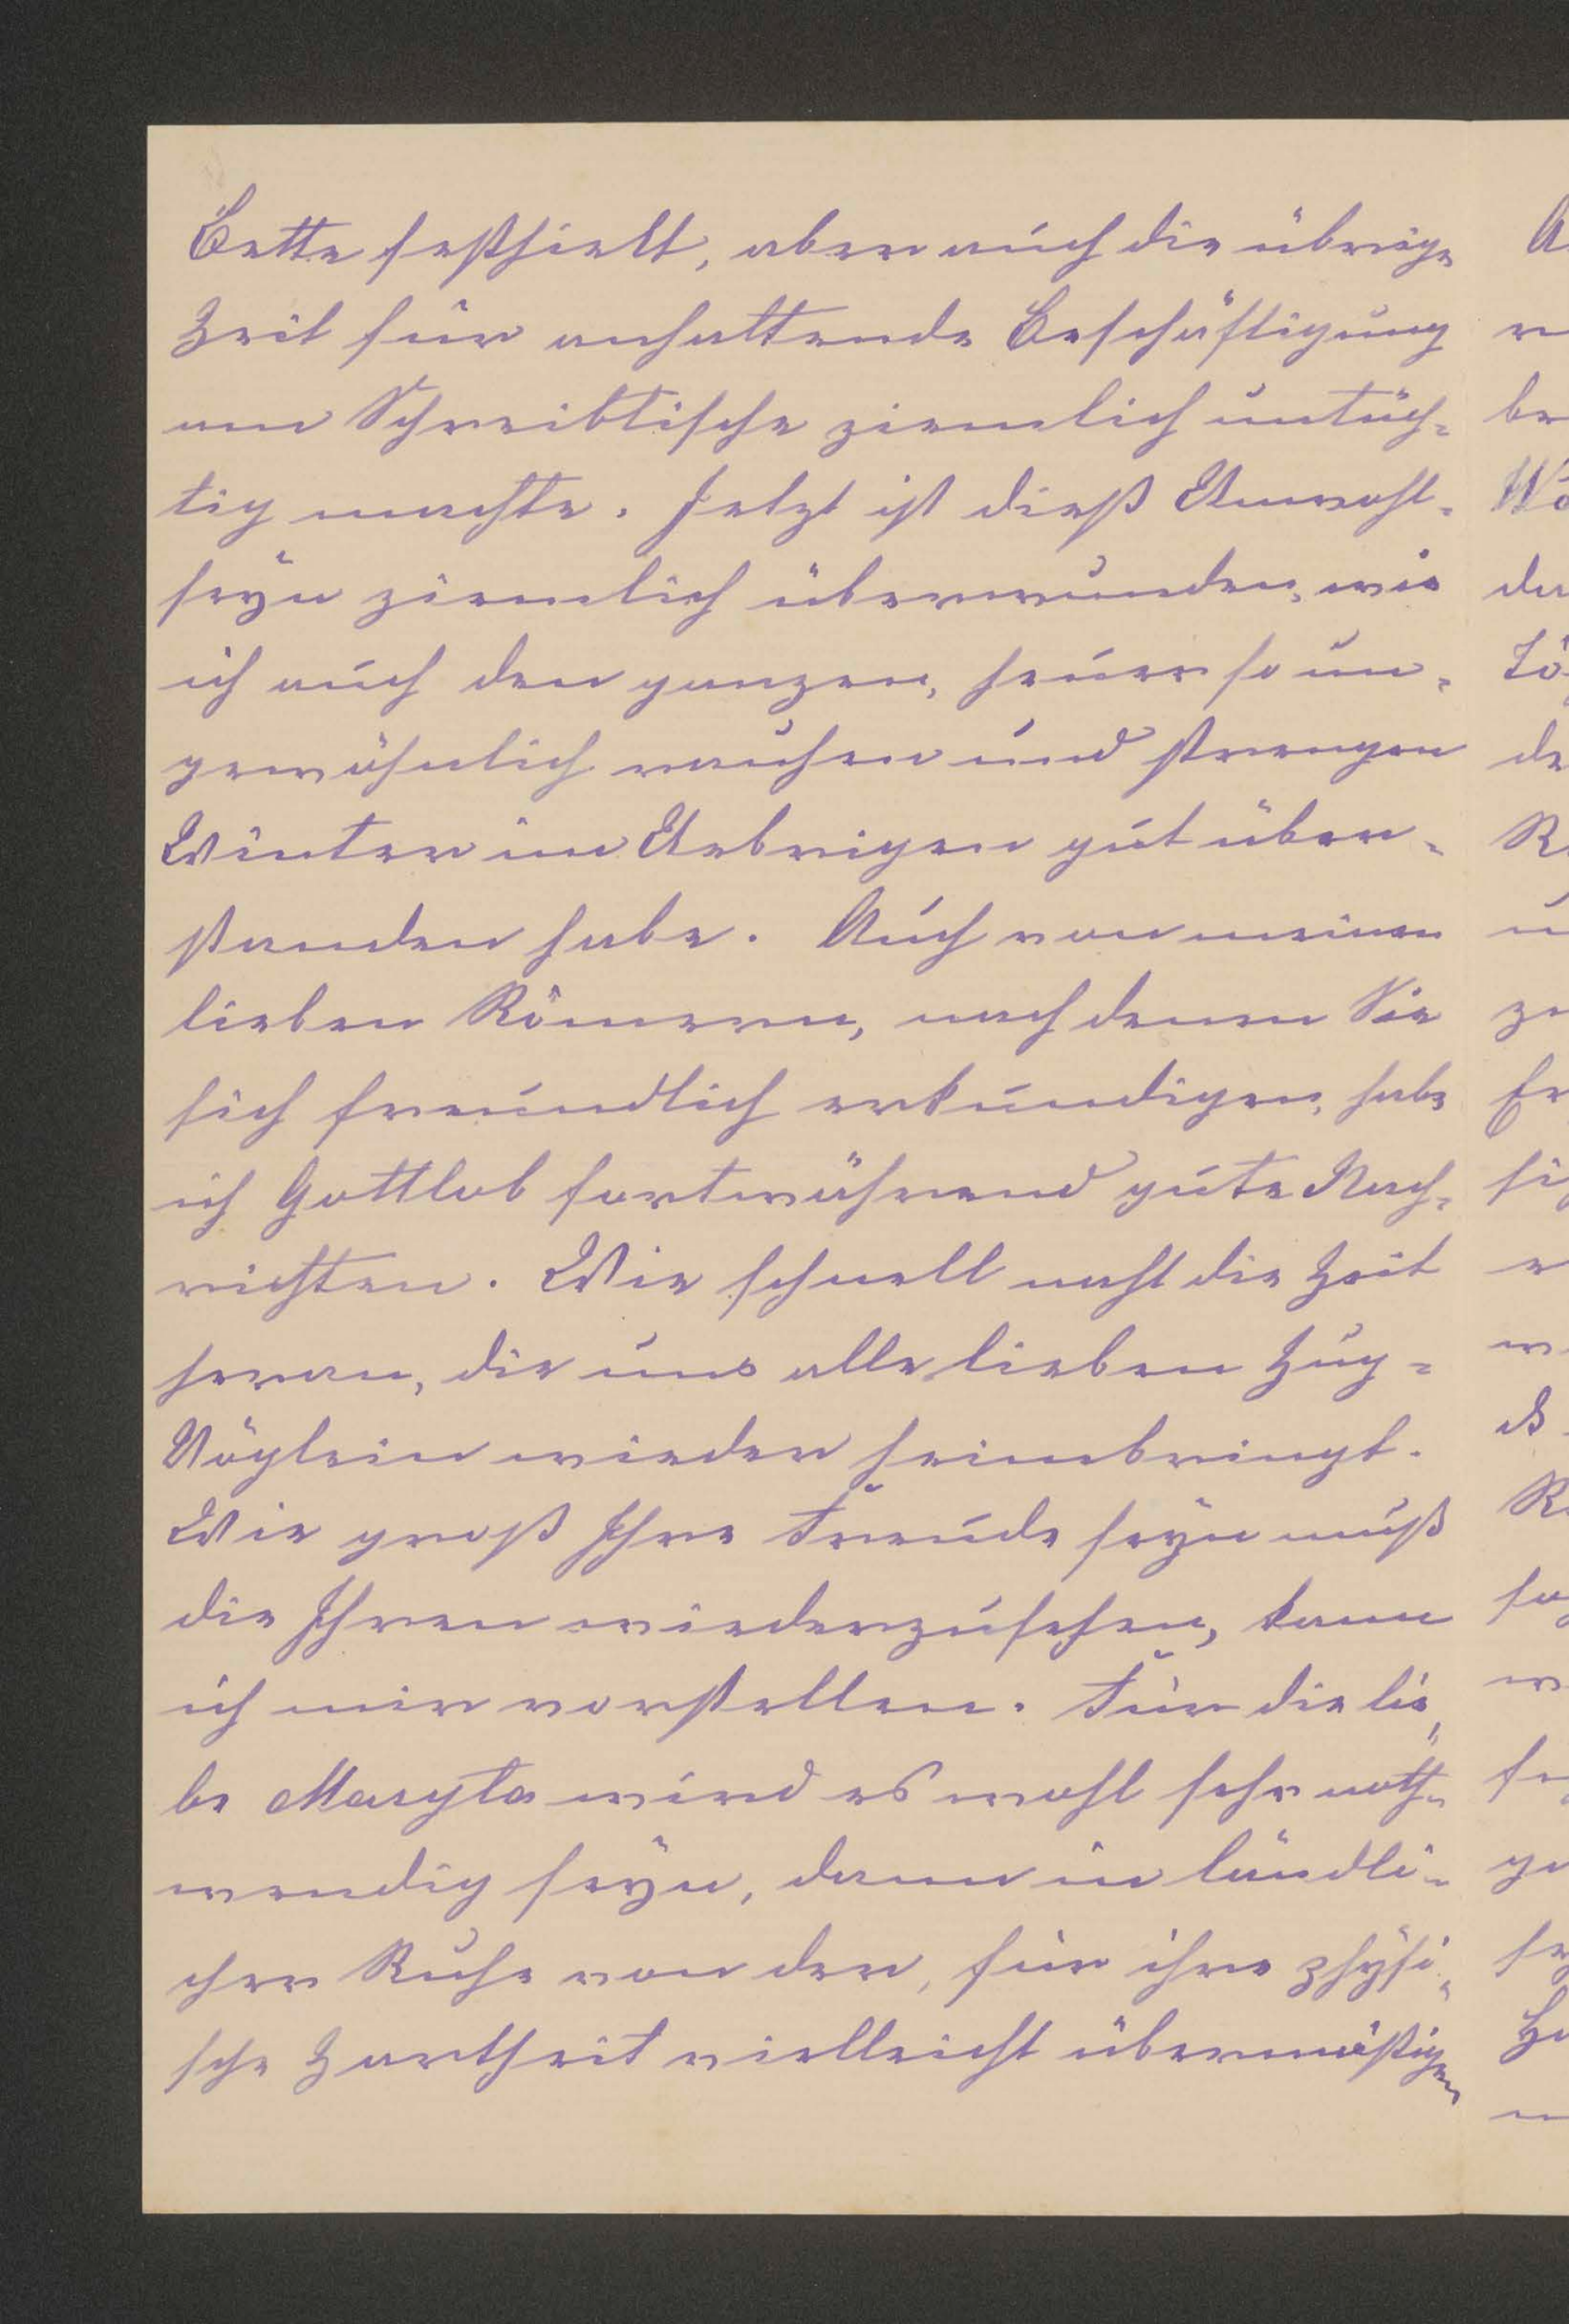 Bette festhielt, aber auch die übrige
Zeit für anhaltende Beschäftigung
am Schreibtische ziemlich untüch-
tig machte. Jetzt ist dieß Unwohl-
seyn ziemlich überwunden, wie
ich auch den ganzen, heuer so un-
gewöhnlich rauhen und strengen
Winter im Uebrigen gut über-
standen habe. Auch von meinen
lieben Römern, nach denen Sie
sich freundlich erkundigen, habe
ich Gottlob fortwährend gute Nach-
richten. Wie schnell naht die Zeit
heran, die uns alle lieben Zug-
Vöglein wieder heimbringt.
Wie groß Ihre Freude seyn muß
die Ihren wiederzusehen, kann
ich mir vorstellen. Für die lie-
be Maryla wird es wohl sehr noth-
wendig seyn, dann in ländli-
cher Ruhe von der, für ihre physi-
sche Zartheit vielleicht übermäßigen